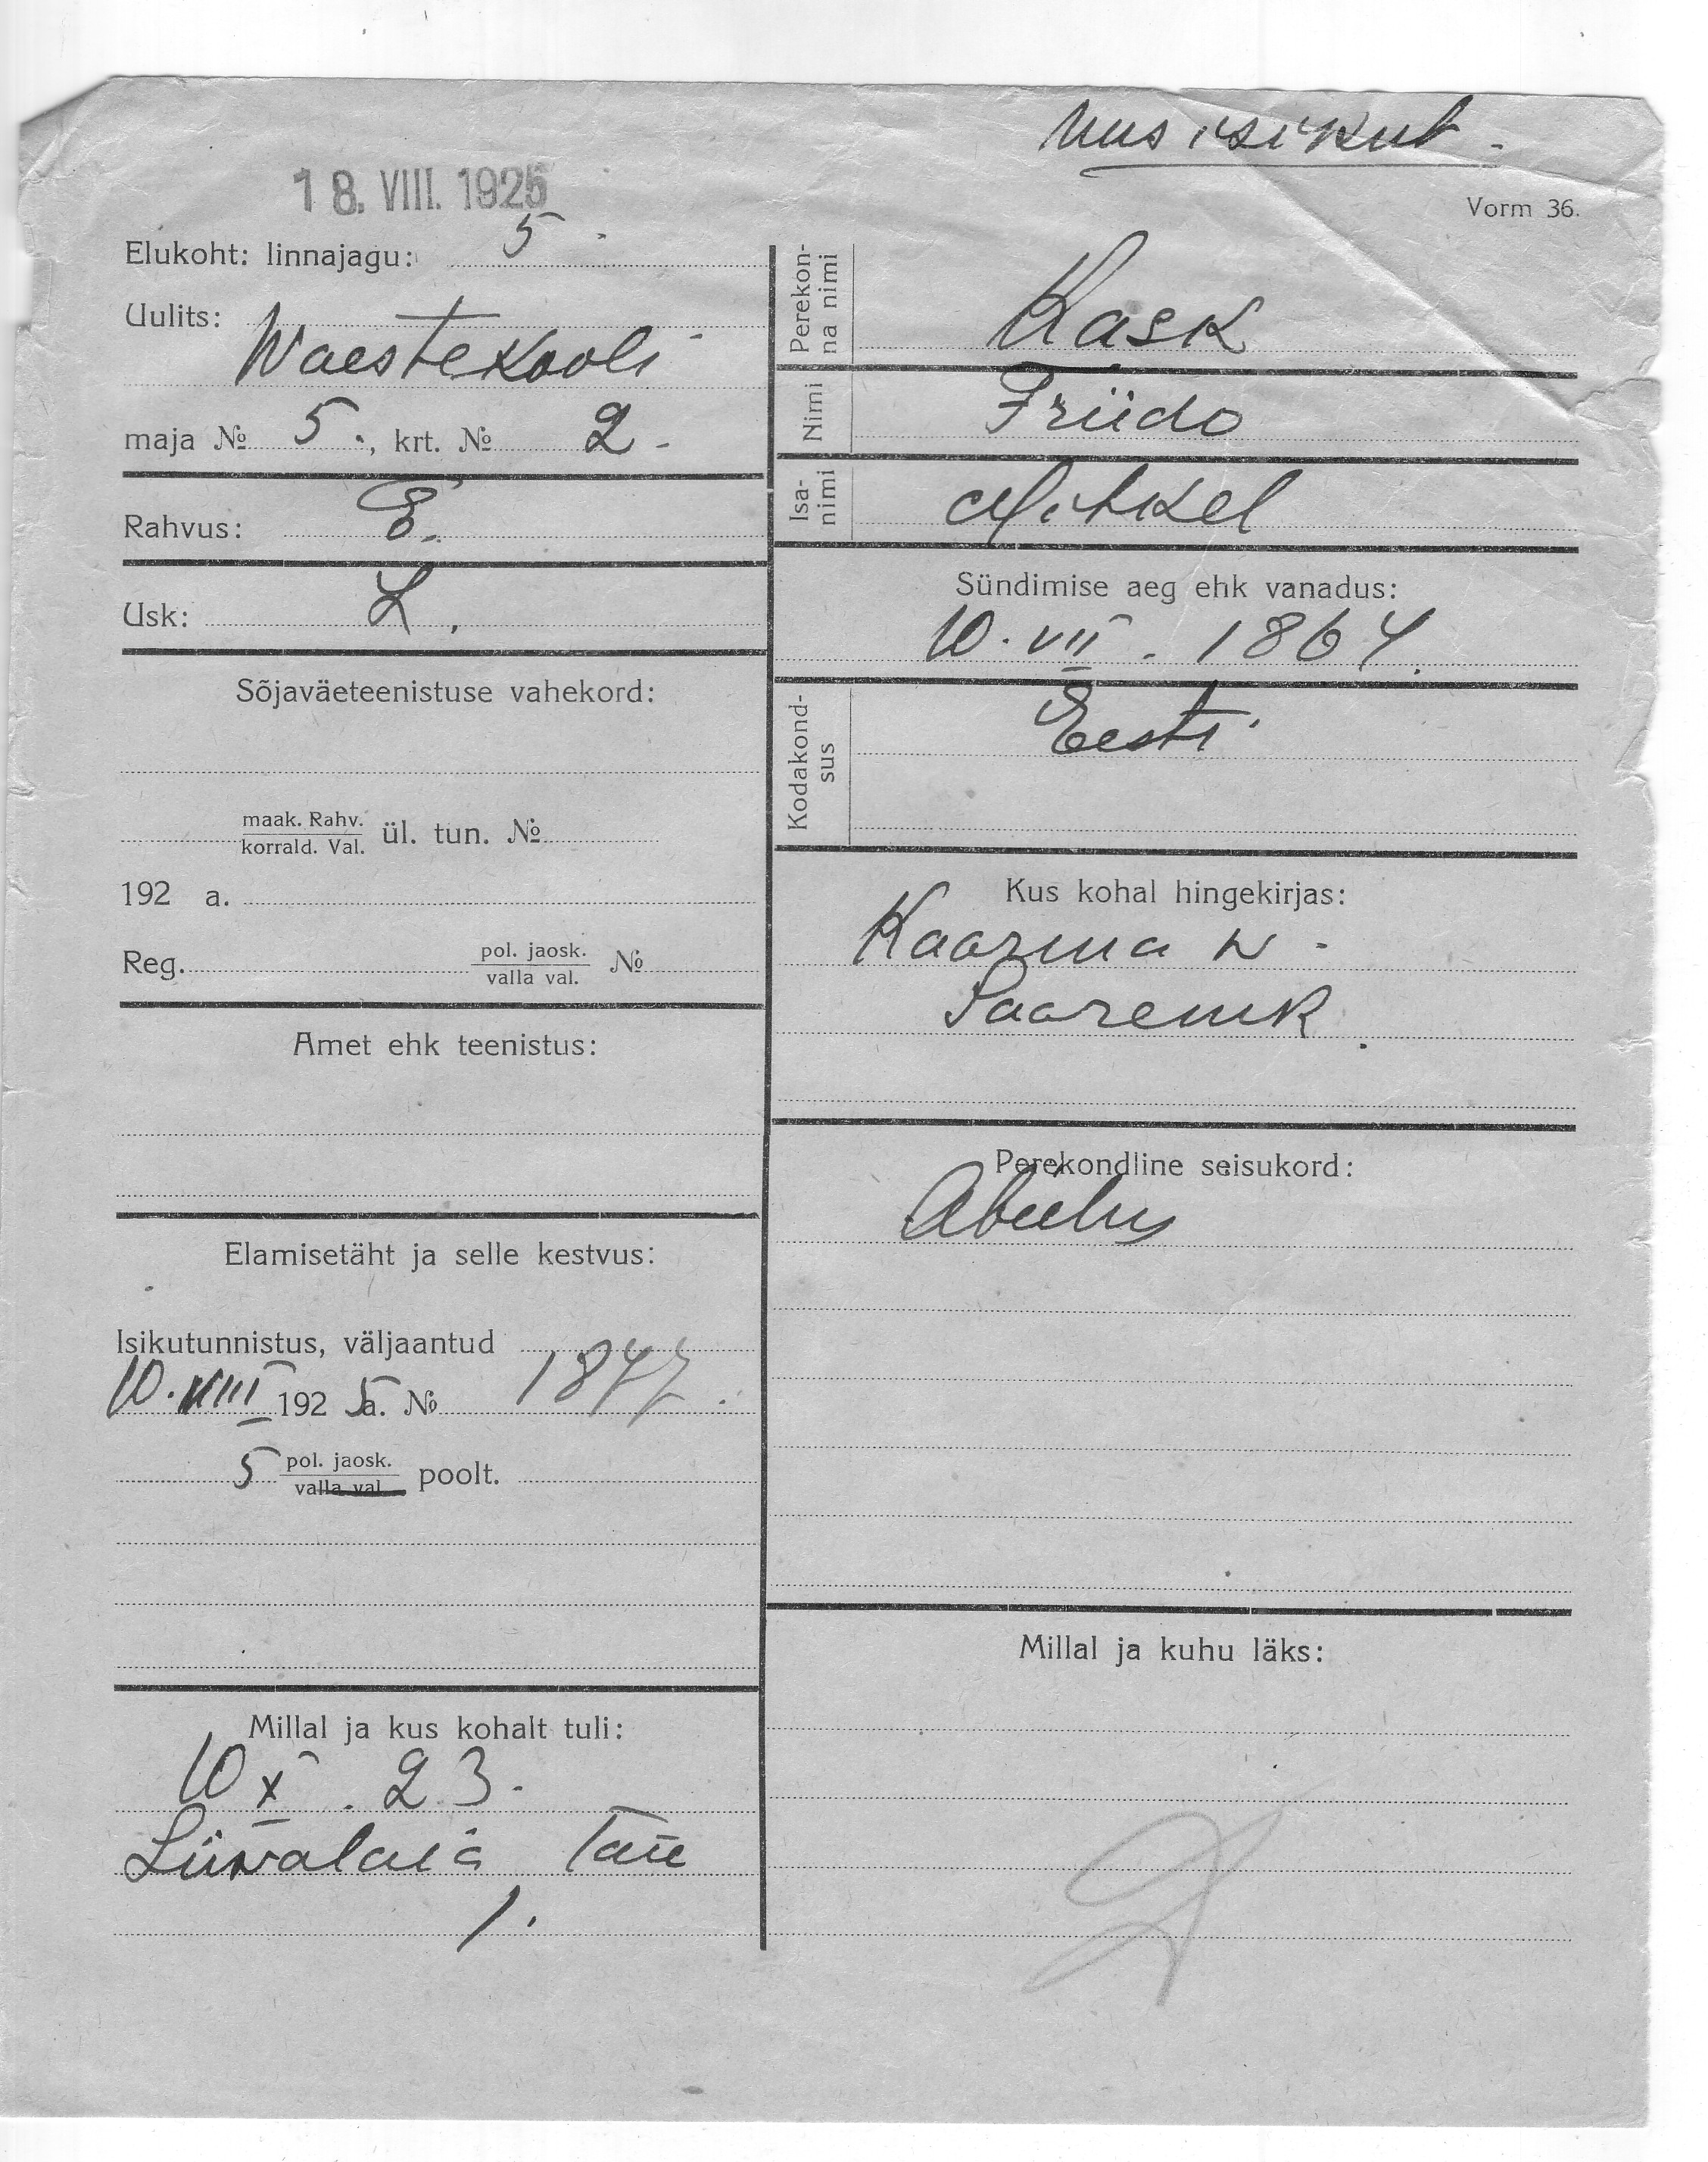 Uus isikut.
18. VIII. 1925
Vorm 36.
Elukoht: linnajagu: 5
Uulits:
Waestekooli
maja № 5., krt. № 2.
Rahvus: E.
Usk: L.
Sõjaväeteenistuse vahekord:
maak. Rahv.
korrald. Val. ül. tun. №
192 a.
Reg. pol. jaosk.
valla val. №
Amet ehk teenistus:
Elamisetäht ja selle kestvus:
Isikutunnistus, väljaantud
10. VIII 192 5 a. № 1847.
5 pol. jaosk.
valla val. poolt.
Millal ja kus kohalt tuli:
10 X. 23.
Liiwalaia
1.
Perekon-
na nimi Kask
Nimi Friido
Isa-
nimi Mihkel
Sündimise aeg ehk vanadus:
10. VII. 1864.
Kodakond-
sus Eesti
Kus kohal hingekirjas:
Kaarma w.
Saaremk
Perekondline seisukord:
Abielus
Millal ja kuhu läks: